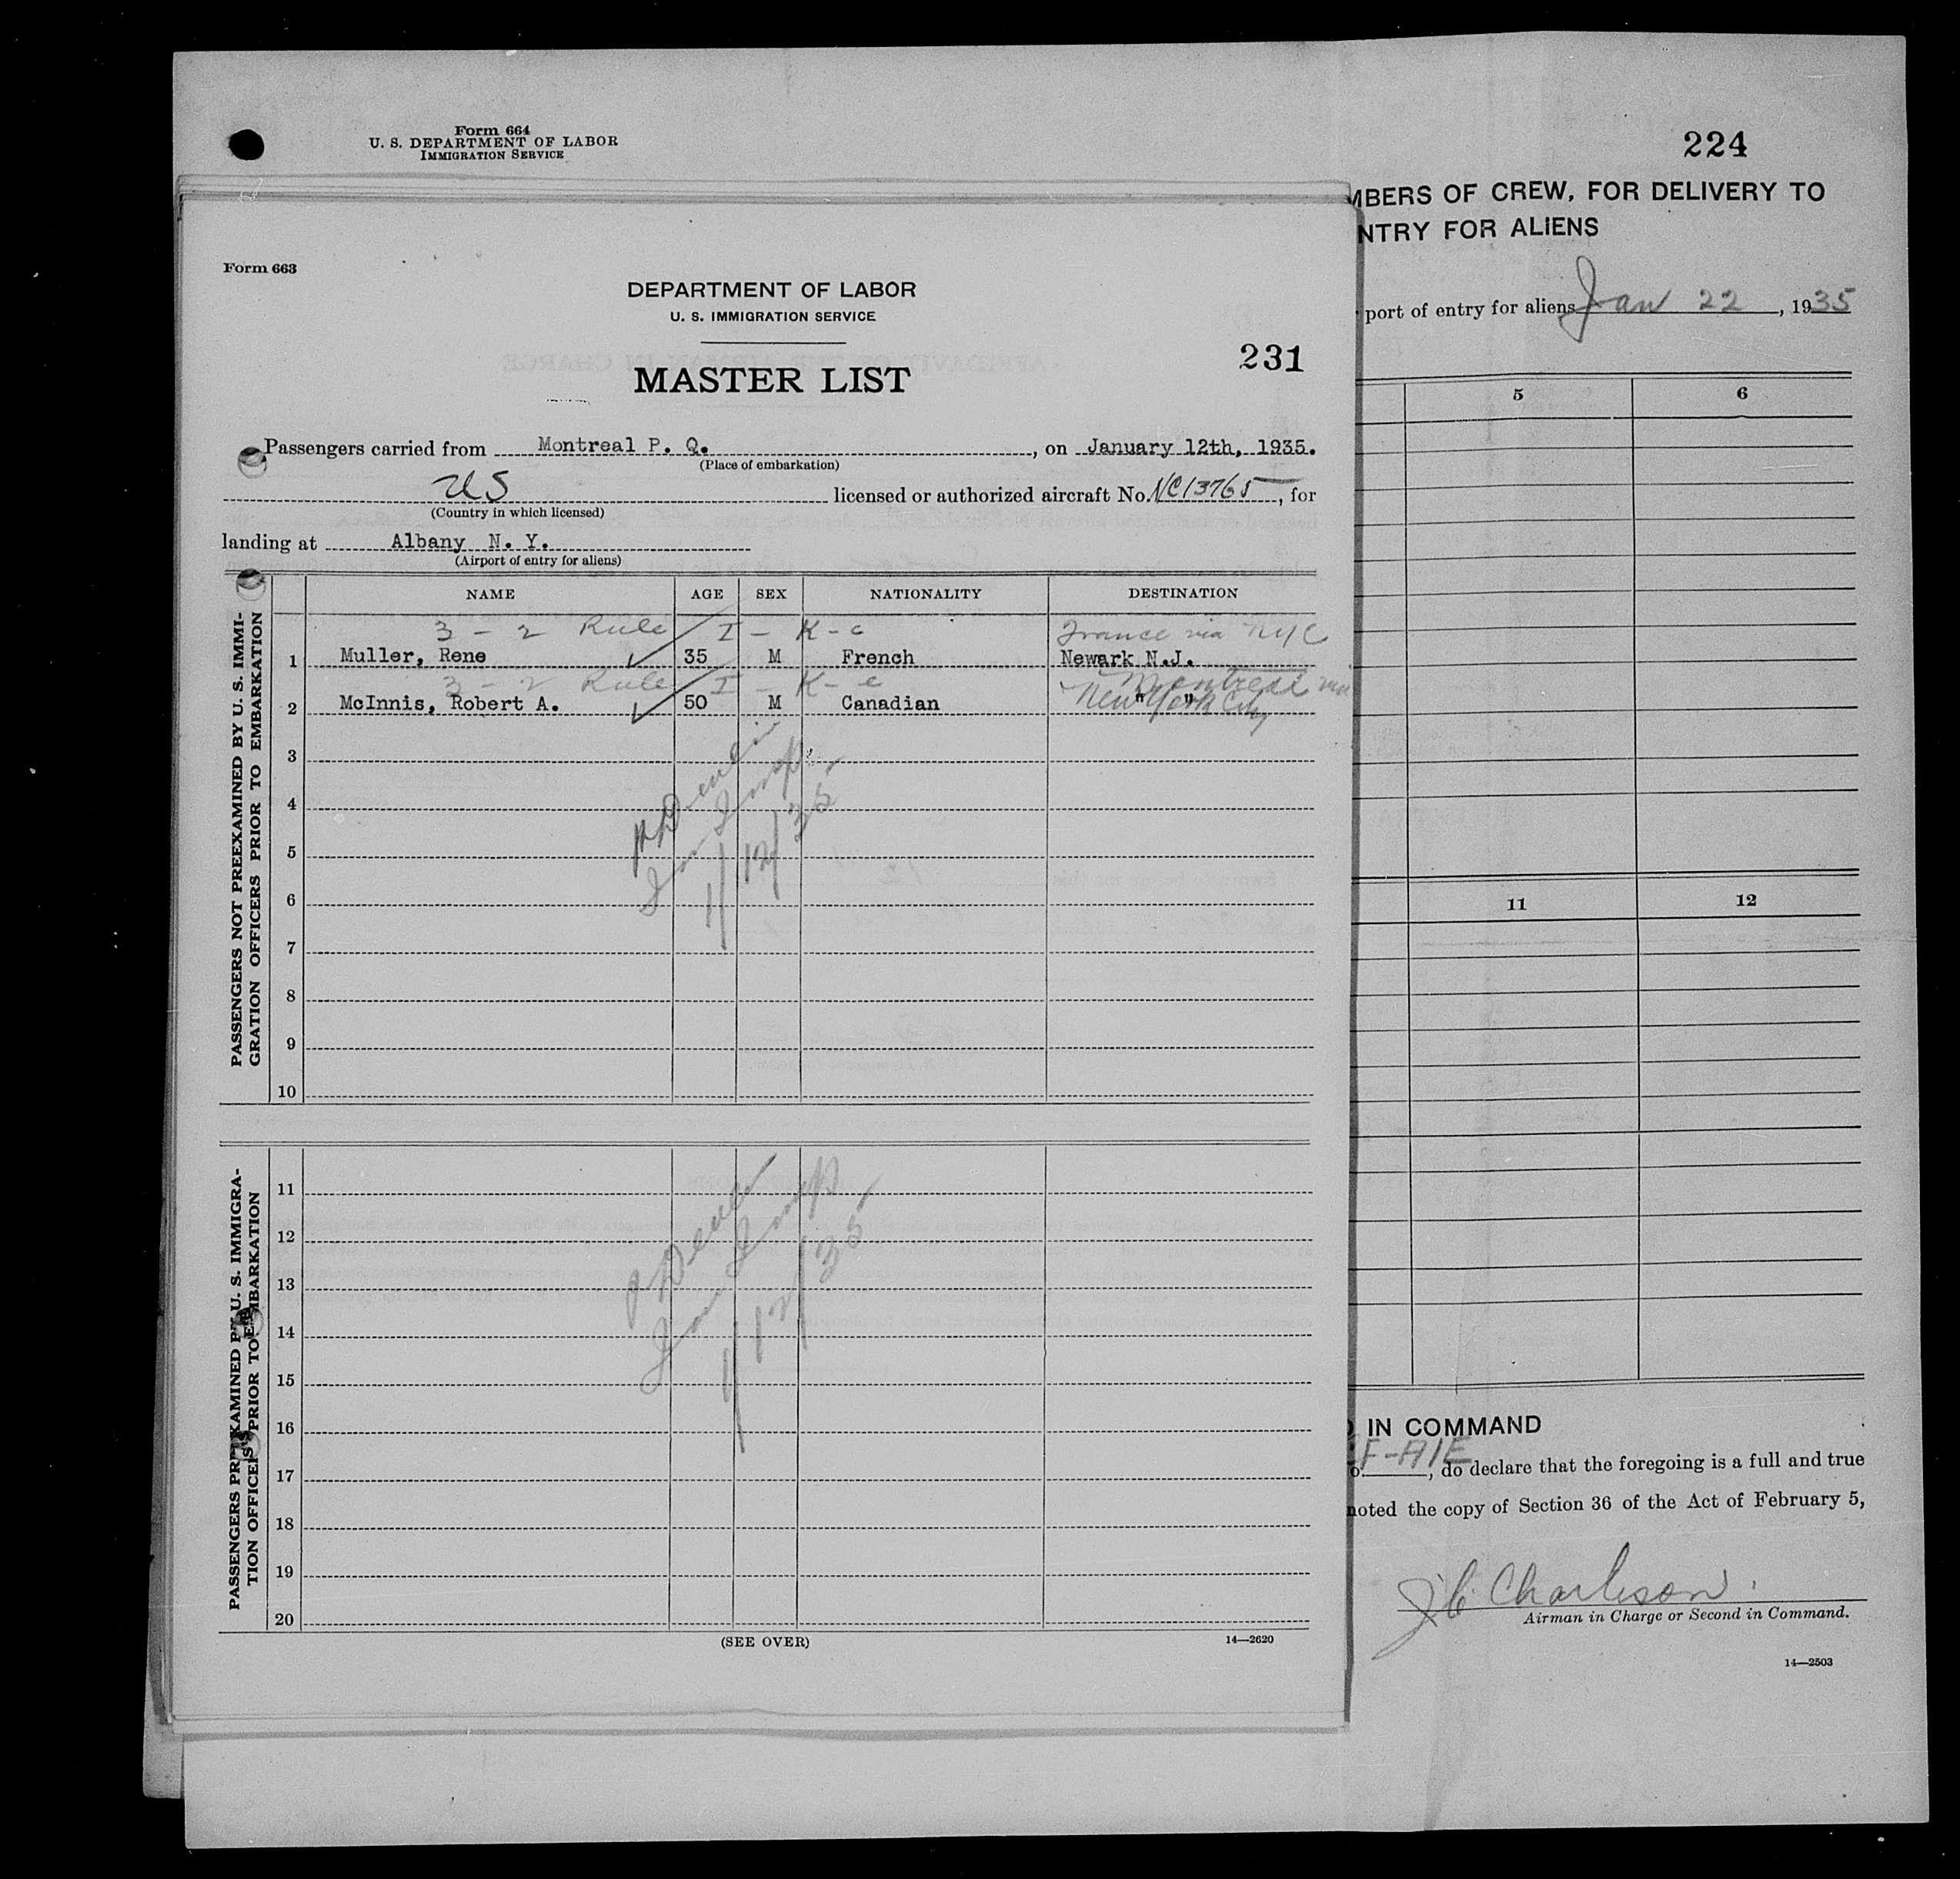 Form 664
U. S. DEPARTMENT OF LABOR
IMMIGRATION SERVICE
224
MBERS OF CREW, FOR DELIVERY TO
NTRY FOR ALIENS
port of entry for aliens Jan 22, 1935
5 6
11 12
IN COMMAND
CF-AIE
o. , do declare that the foregoing is a full and true
noted the copy of Section 36 of the Act of February 5,
J C Charleson.
Airman in Charge or Second in Command.
14—2503
Form 663
DEPARTMENT OF LABOR
U. S. IMMIGRATION SERVICE
231
MASTER LIST
Passengers carried from Montreal P. Q. , on January 12th, 1935.
(Place of embarkation)
US licensed or authorized aircraft No. NC13765, for
(Country in which licensed)
landing at Albany N. Y.
(Airport of entry for aliens)
NAME AGE SEX NATIONALITY DESTINATION
PASSENGERS NOT PREEXAMINED BY U. S. IMMI-
GRATION OFFICERS PRIOR TO EMBARKATION
3 - 2 Rule I - K-c France via NYC
1 Muller, Rene 35 M French Newark N.J.
3 - 2 Rule I - K-c Montreal via
2 McInnis, Robert A. 50 M Canadian " "
New York City
3
4
5
6
7
8
9
10
1/12/35
PASSENGERS PREEXAMINED BY U. S. IMMIGRA-
TION OFFICERS PRIOR TO EMBARKATION
11
12
13
14
15
16
17
18
19
20
1/12/35
(SEE OVER)
14—2620